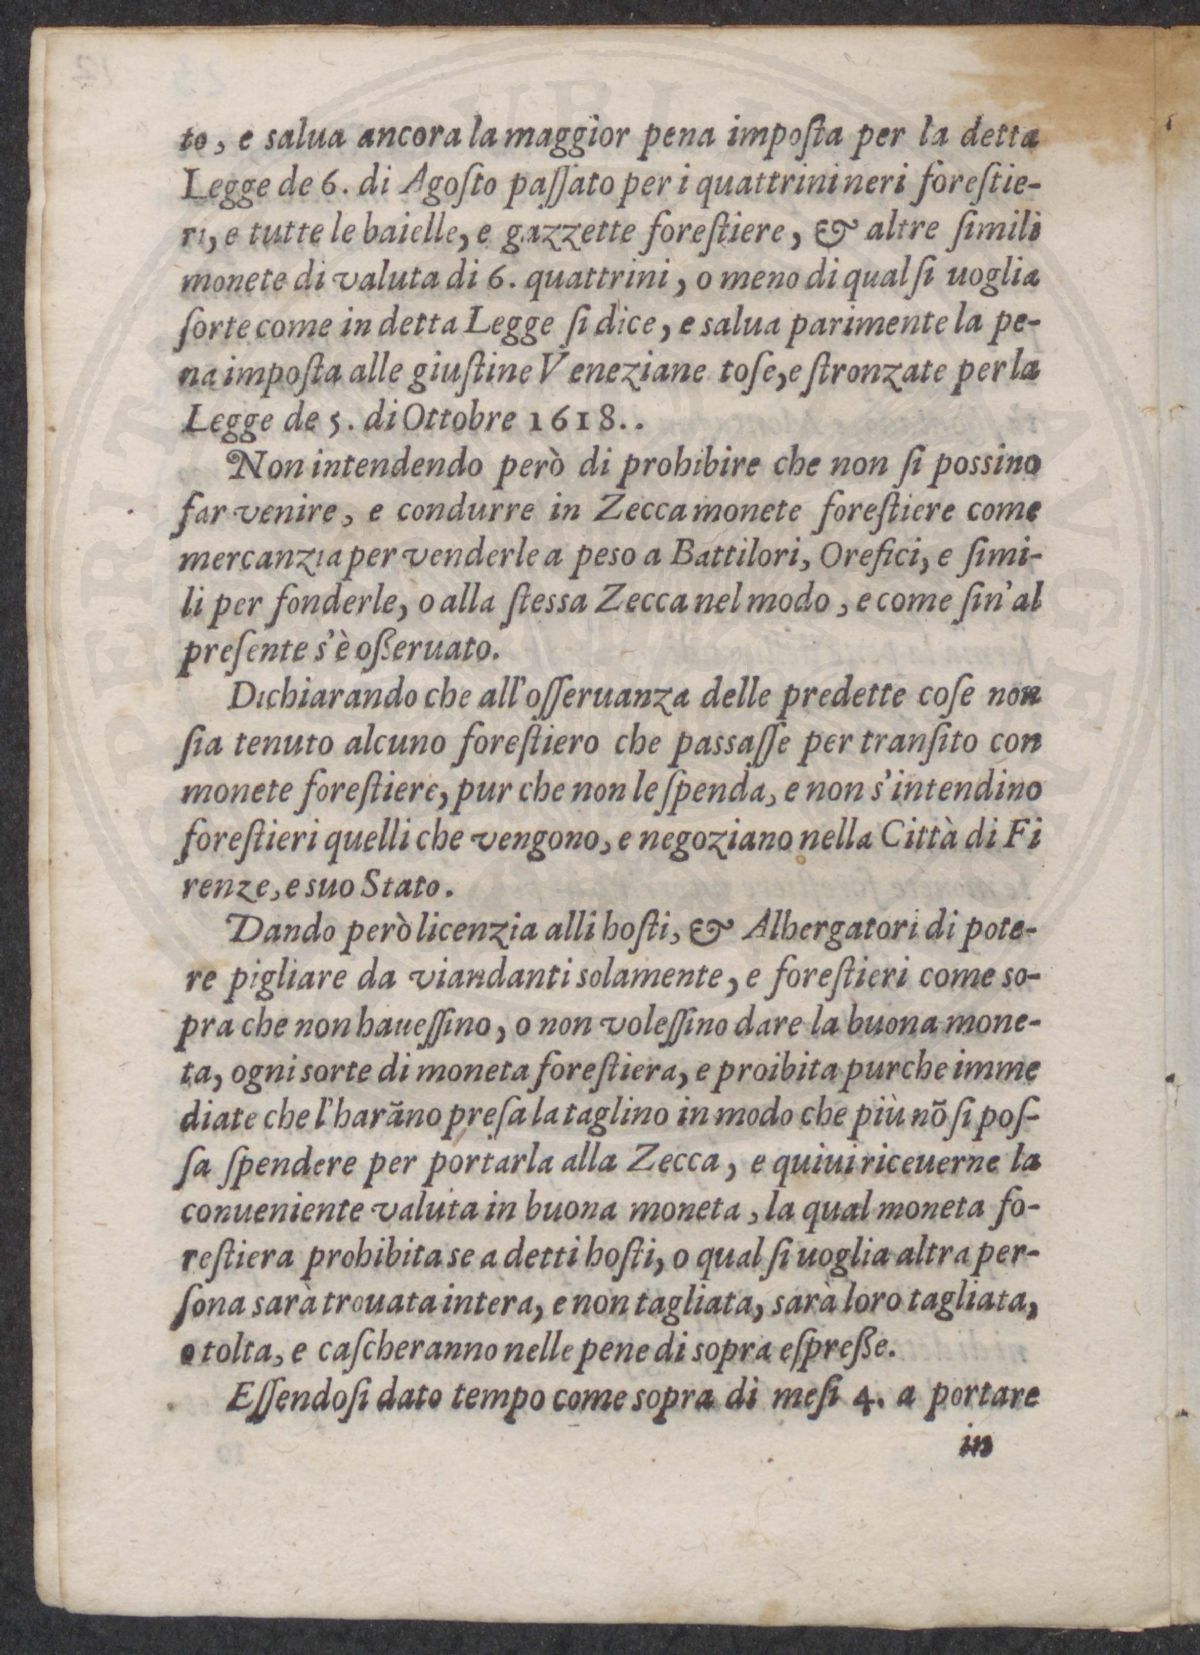 to, e salua ancora la maggior pena impoſta per la detta
Legge de 6. di Agoſto paſſato per i quattrini neri foreſtie-
ri, e tutte le baielle, e gazzette foreſtiere, & altre ſimili
monete di valuta di 6. quattrini, o meno di qual ſi uoglia
ſorte come in detta Legge ſi dice, e salua parimente la pe-
na impoſta alle giuſtine Veneziane toſe, e ſtronzate per la
Legge de 5. di Ottobre 1618..
Non intendendo però di prohibire che non ſi possino
far venire, e condurre in Zecca monete foreſtiere come
mercanzia per venderle a peso a Battilori, Orefici, e ſimi-
li per fonderle, o alla ſtessa Zecca nel modo, e come ſin'al
preſente s'è oßeruato.
Dichiarando che all'oſſeruanza delle predette coſe non
ſia tenuto alcuno foreſtiero che passaſſe per tranſito con
monete foreſtiere, pur che non le ſpenda, e non s'intendino
foreſtieri quelli che vengono, e negoziano nella Città di Fi
renze, e suo Stato.
Dando però licenzia alli hoſti, & Albergatori di pote-
re pigliare da viandanti solamente, e foreſtieri come so-
pra che non haueſſino, o non voleſſino dare la buona mone-
ta, ogni sorte di moneta foreſtiera, e proibita purche imme
diate che l'harāno preſa la taglino in modo che più nō ſi poſ-
ſa ſpendere per portarla alla Zecca, e quiui riceuerne la
conueniente valuta in buona moneta, la qual moneta fo-
reſtiera prohibita se a detti hoſti, o qual ſi uoglia altra per-
ſona sara trouata intera, e non tagliata, sarà loro tagliata,
e tolta, e caſcheranno nelle pene di sopra eſpreße.
Eſſendoſi dato tempo come sopra di meſi 4. a portare
in